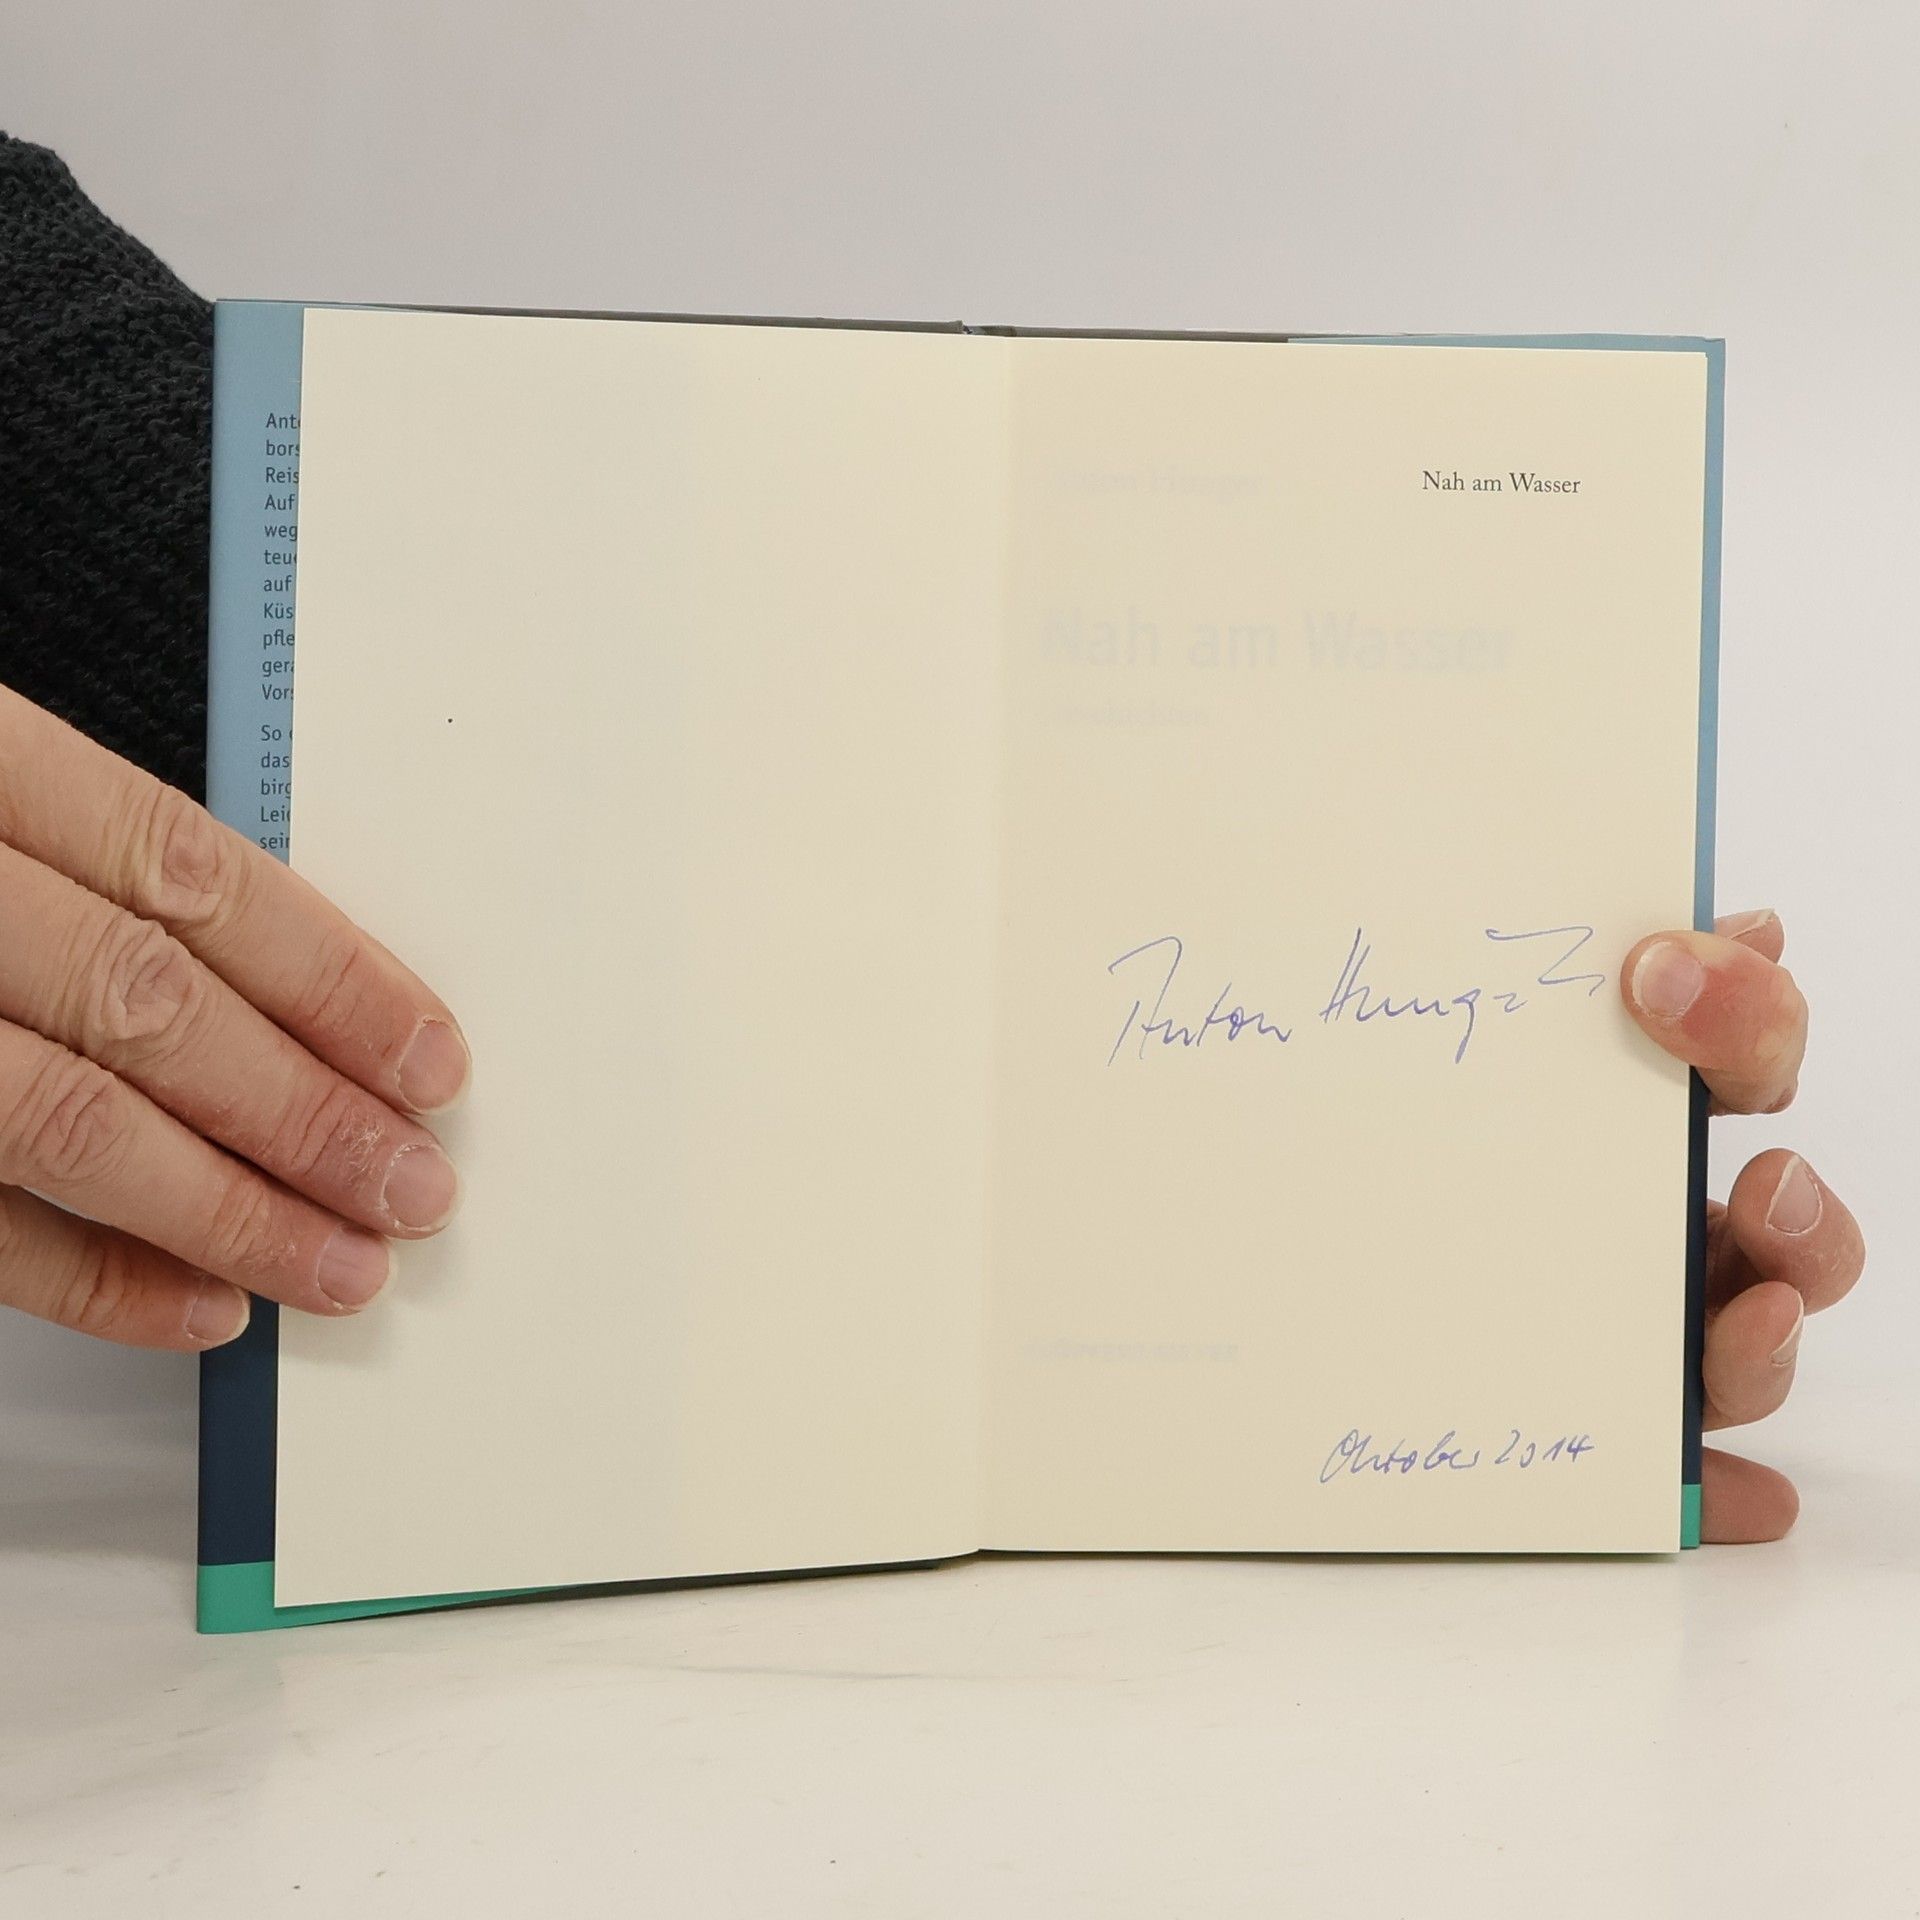 Ant
bors
Reis
Auf
weg
teu
auf
Küs
pfle
gera
Vors
So
das
birg
Lei
sein
Nah am Wasser
Nah am Wasser
Anton
Oktober 2014